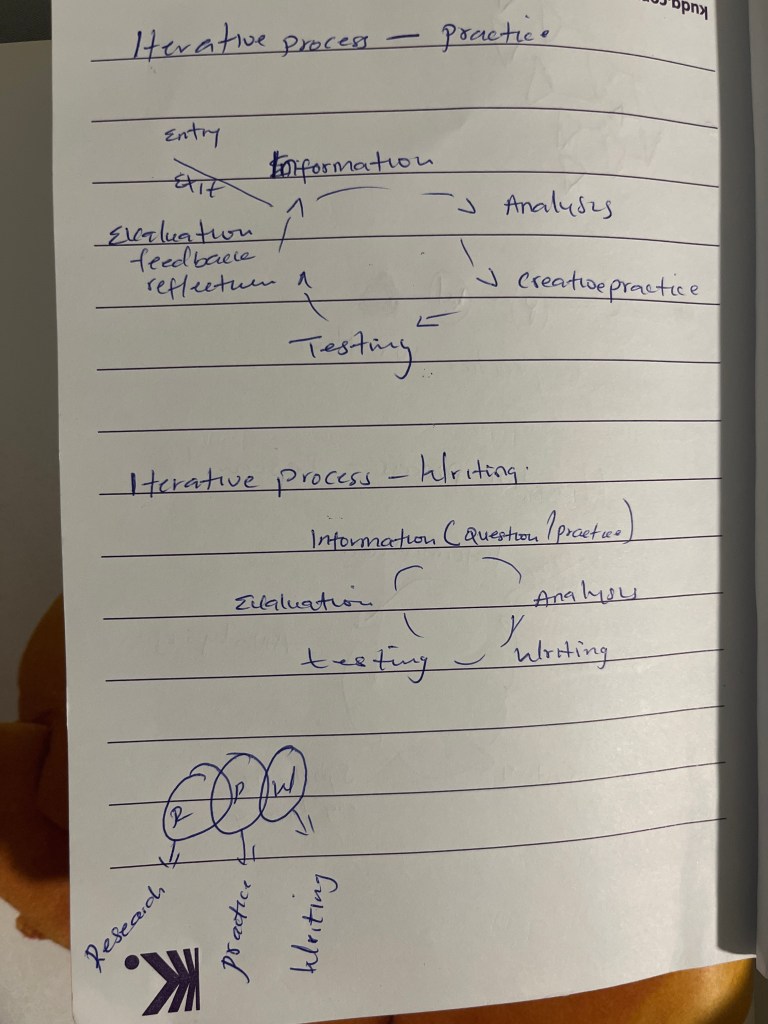 kuda.co
Iterative process – practice
Entry
Exit
Information
Analysis
Evaluation
feedback
reflection
Creative practice
Testing
Iterative process – Writing.
Information (Question / practice)
Evaluation
Analysis
testing
Writing
R P W
Research
practice
Writing
K.